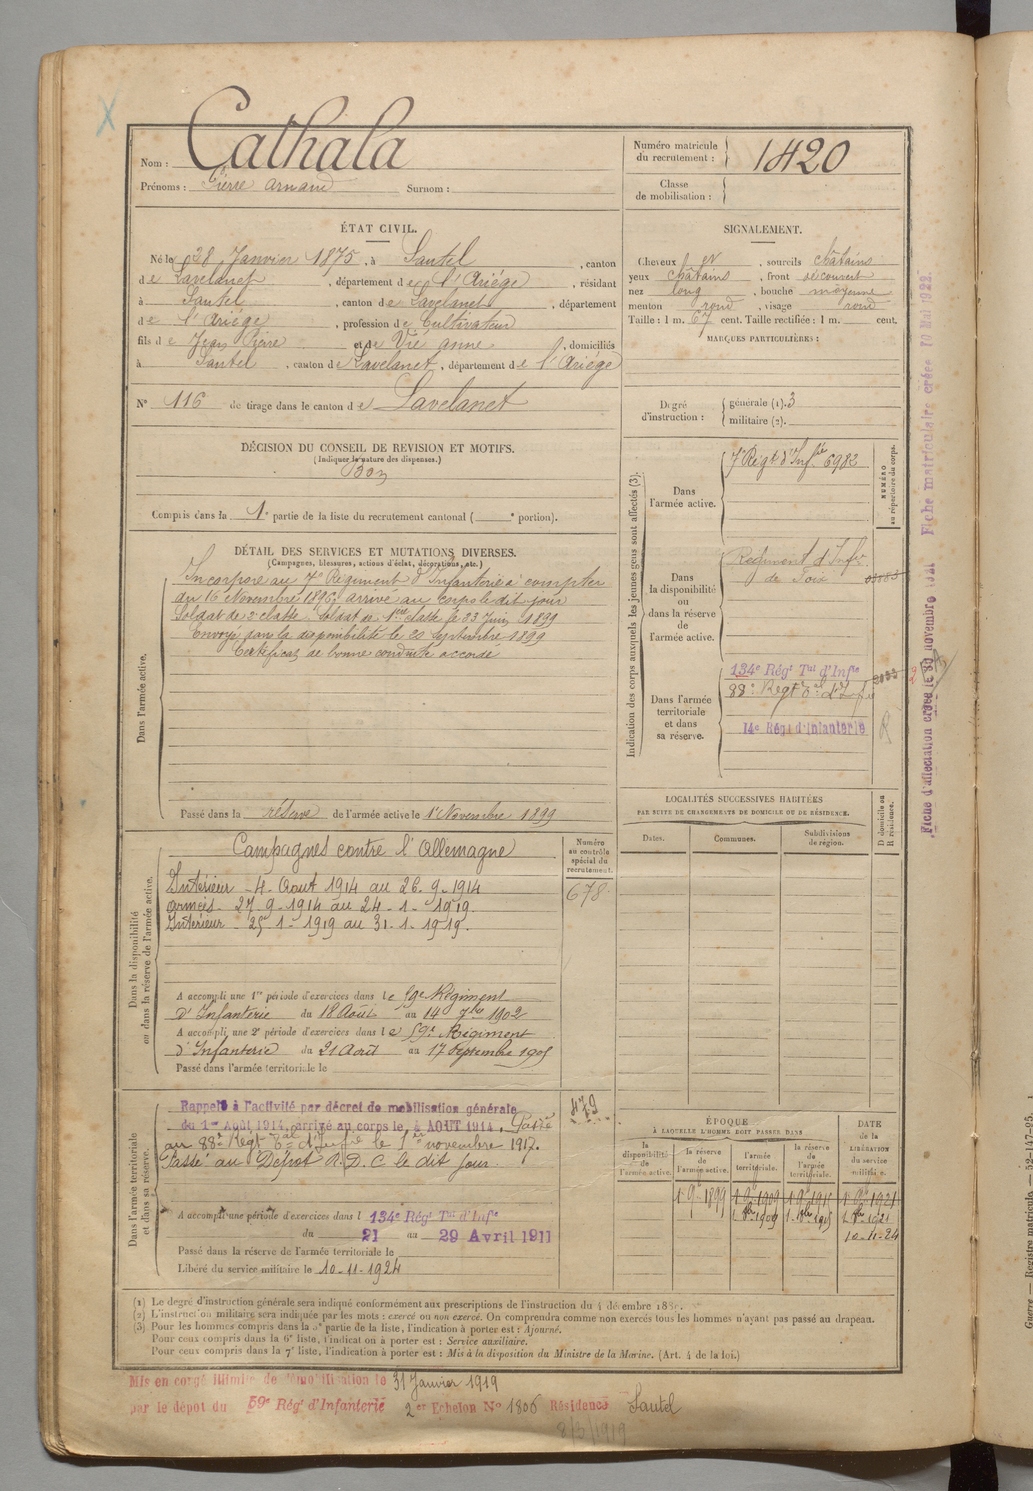 Nom : Cathala
Prénoms : Pierre Arnaud Surnom :
Numéro matricule du recrutement : 1420
Classe de mobilisation :
ÉTAT CIVIL.
Né le 28 Janvier 1875, à Sautel, canton
de Lavelanet, département de l'Ariége, résidant
à Sautel, canton de Lavelanet, département
de l'Ariége, profession de Cultivateur
fils de Jean Pierre et de Vié Anne, domiciliés
à Sautel, canton de Lavelanet, département de l'Ariége
N° 116 de tirage dans le canton de Lavelanet
SIGNALEMENT.
Cheveux, sourcils châtains
yeux châtains, front découvert
nez long, bouche moyenne
menton rond, visage rond
Taille : 1 m. 67 cent. Taille rectifiée : 1 m. cent.
MARQUES PARTICULIÈRES :
Degré d'instruction : générale (1). 3
militaire (2).
DÉCISION DU CONSEIL DE REVISION ET MOTIFS.
(Indiquer la nature des dispenses.)
Bon
Compris dans la 1e partie de la liste du recrutement cantonal ( e portion).
DÉTAIL DES SERVICES ET MUTATIONS DIVERSES.
(Campagnes, blessures, actions d'éclat, décorations, etc.)
Dans l'armée active.
Incorporé au 7e Régiment d'Infanterie à compter
du 16 Novembre 1896, arrivé au corps le dit jour
Soldat de 2e classe. Soldat de 1ère classe le 23 Juin 1899
Envoyé dans la disponibilité le 20 Septembre 1899
Certificat de bonne conduite accordé
Passé dans la réserve de l'armée active le 1er Novembre 1899
Indication des corps auxquels les jeunes gens sont affectés (3).
NUMÉRO au répertoire du corps.
Dans l'armée active.
7e Régt d'Infie 6982
Dans la disponibilité ou dans la réserve de l'armée active.
Régiment d'Infie
de Foix
Dans l'armée territoriale et dans sa réserve.
134e Régt Tal d'Infie
88e Regt Tal d'Infie
14e Régt d'Infanterie
Fiche d'affectation créée le 30 novembre 1921 Fiche matriculaire créée 10 Mai 1922
LOCALITÉS SUCCESSIVES HABITÉES
PAR SUITE DE CHANGEMENTS DE DOMICILE OU DE RÉSIDENCE.
Dates. Communes. Subdivisions de région.
D domicile ou R résidence.
Dans la disponibilité ou dans la réserve de l'armée active.
Numéro au contrôle spécial du recrutement.
678
Campagnes contre l'Allemagne
Intérieur - 4. Aout 1914 au 26. 9. 1914
Armées - 27 - 9 - 1914 au 24 - 1 - 1919.
Intérieur - 25 - 1 - 1919 au 31 - 1 - 1919.
A accompli une 1re période d'exercices dans le 59e Régiment
d'Infanterie du 18 Août au 14 7bre 1902
A accompli une 2e période d'exercices dans le 59e Régiment
d'Infanterie du 21 Août au 17 Septembre 1905
Passé dans l'armée territoriale le
Dans l'armée territoriale et dans sa réserve.
479
Rappelé à l'activité par décret de mobilisation générale
du 1er Août 1914, arrivé au corps le 4 AOUT 1914. Passé
au 88e Regt Tal d'Infie le 1er novembre 1917.
Passé au Dépot A. D. C le dit jour.
A accompli une période d'exercices dans l 134e Régt Tal d'Infie
du 21 au 29 Avril 1911
Passé dans la réserve de l'armée territoriale le
Libéré du service militaire le 10-11-1924
ÉPOQUE
À LAQUELLE L'HOMME DOIT PASSER DANS
la disponibilité de l'armée active. la réserve de l'armée active. l'armée territoriale. la réserve de l'armée territoriale. DATE de la LIBÉRATION du service militaire.
1er 9bre 1899 1er 9bre 1909 1er 9bre 1915 1er 9bre 1921
1er 8bre 1909 1er 8bre 1915 1er 8bre 1921
10-11-24
(1) Le degré d'instruction générale sera indiqué conformément aux prescriptions de l'instruction du 4 décembre 1889.
(2) L'instruction militaire sera indiquée par les mots : exercé ou non exercé. On comprendra comme non exercés tous les hommes n'ayant pas passé au drapeau.
(3) Pour les hommes compris dans la 5e partie de la liste, l'indication à porter est : Ajourné.
Pour ceux compris dans la 6e liste, l'indication à porter est : Service auxiliaire.
Pour ceux compris dans la 7e liste, l'indication à porter est : Mis à la disposition du Ministre de la Marine. (Art. 4 de la loi.)
Mis en congé illimité de démobilisation le 31 Janvier 1919
par le dépot du 59e Régt d'Infanterie 2er Echelon N° 1806 Résidence Sautel
8/3/1919
Guerre — Registre matricule — 52-147-95.